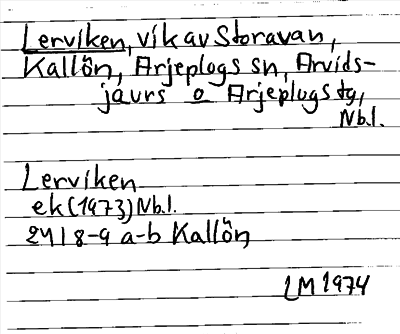 Lerviken, vik av Storavan,
Kallön, Arjeplogs sn, Arvids-
jaurs o Arjeplogs tg,
Nb.l.
Lerviken
ek (1973) Nb.l.
24I 8-9 a-b Kallön
LM 1974